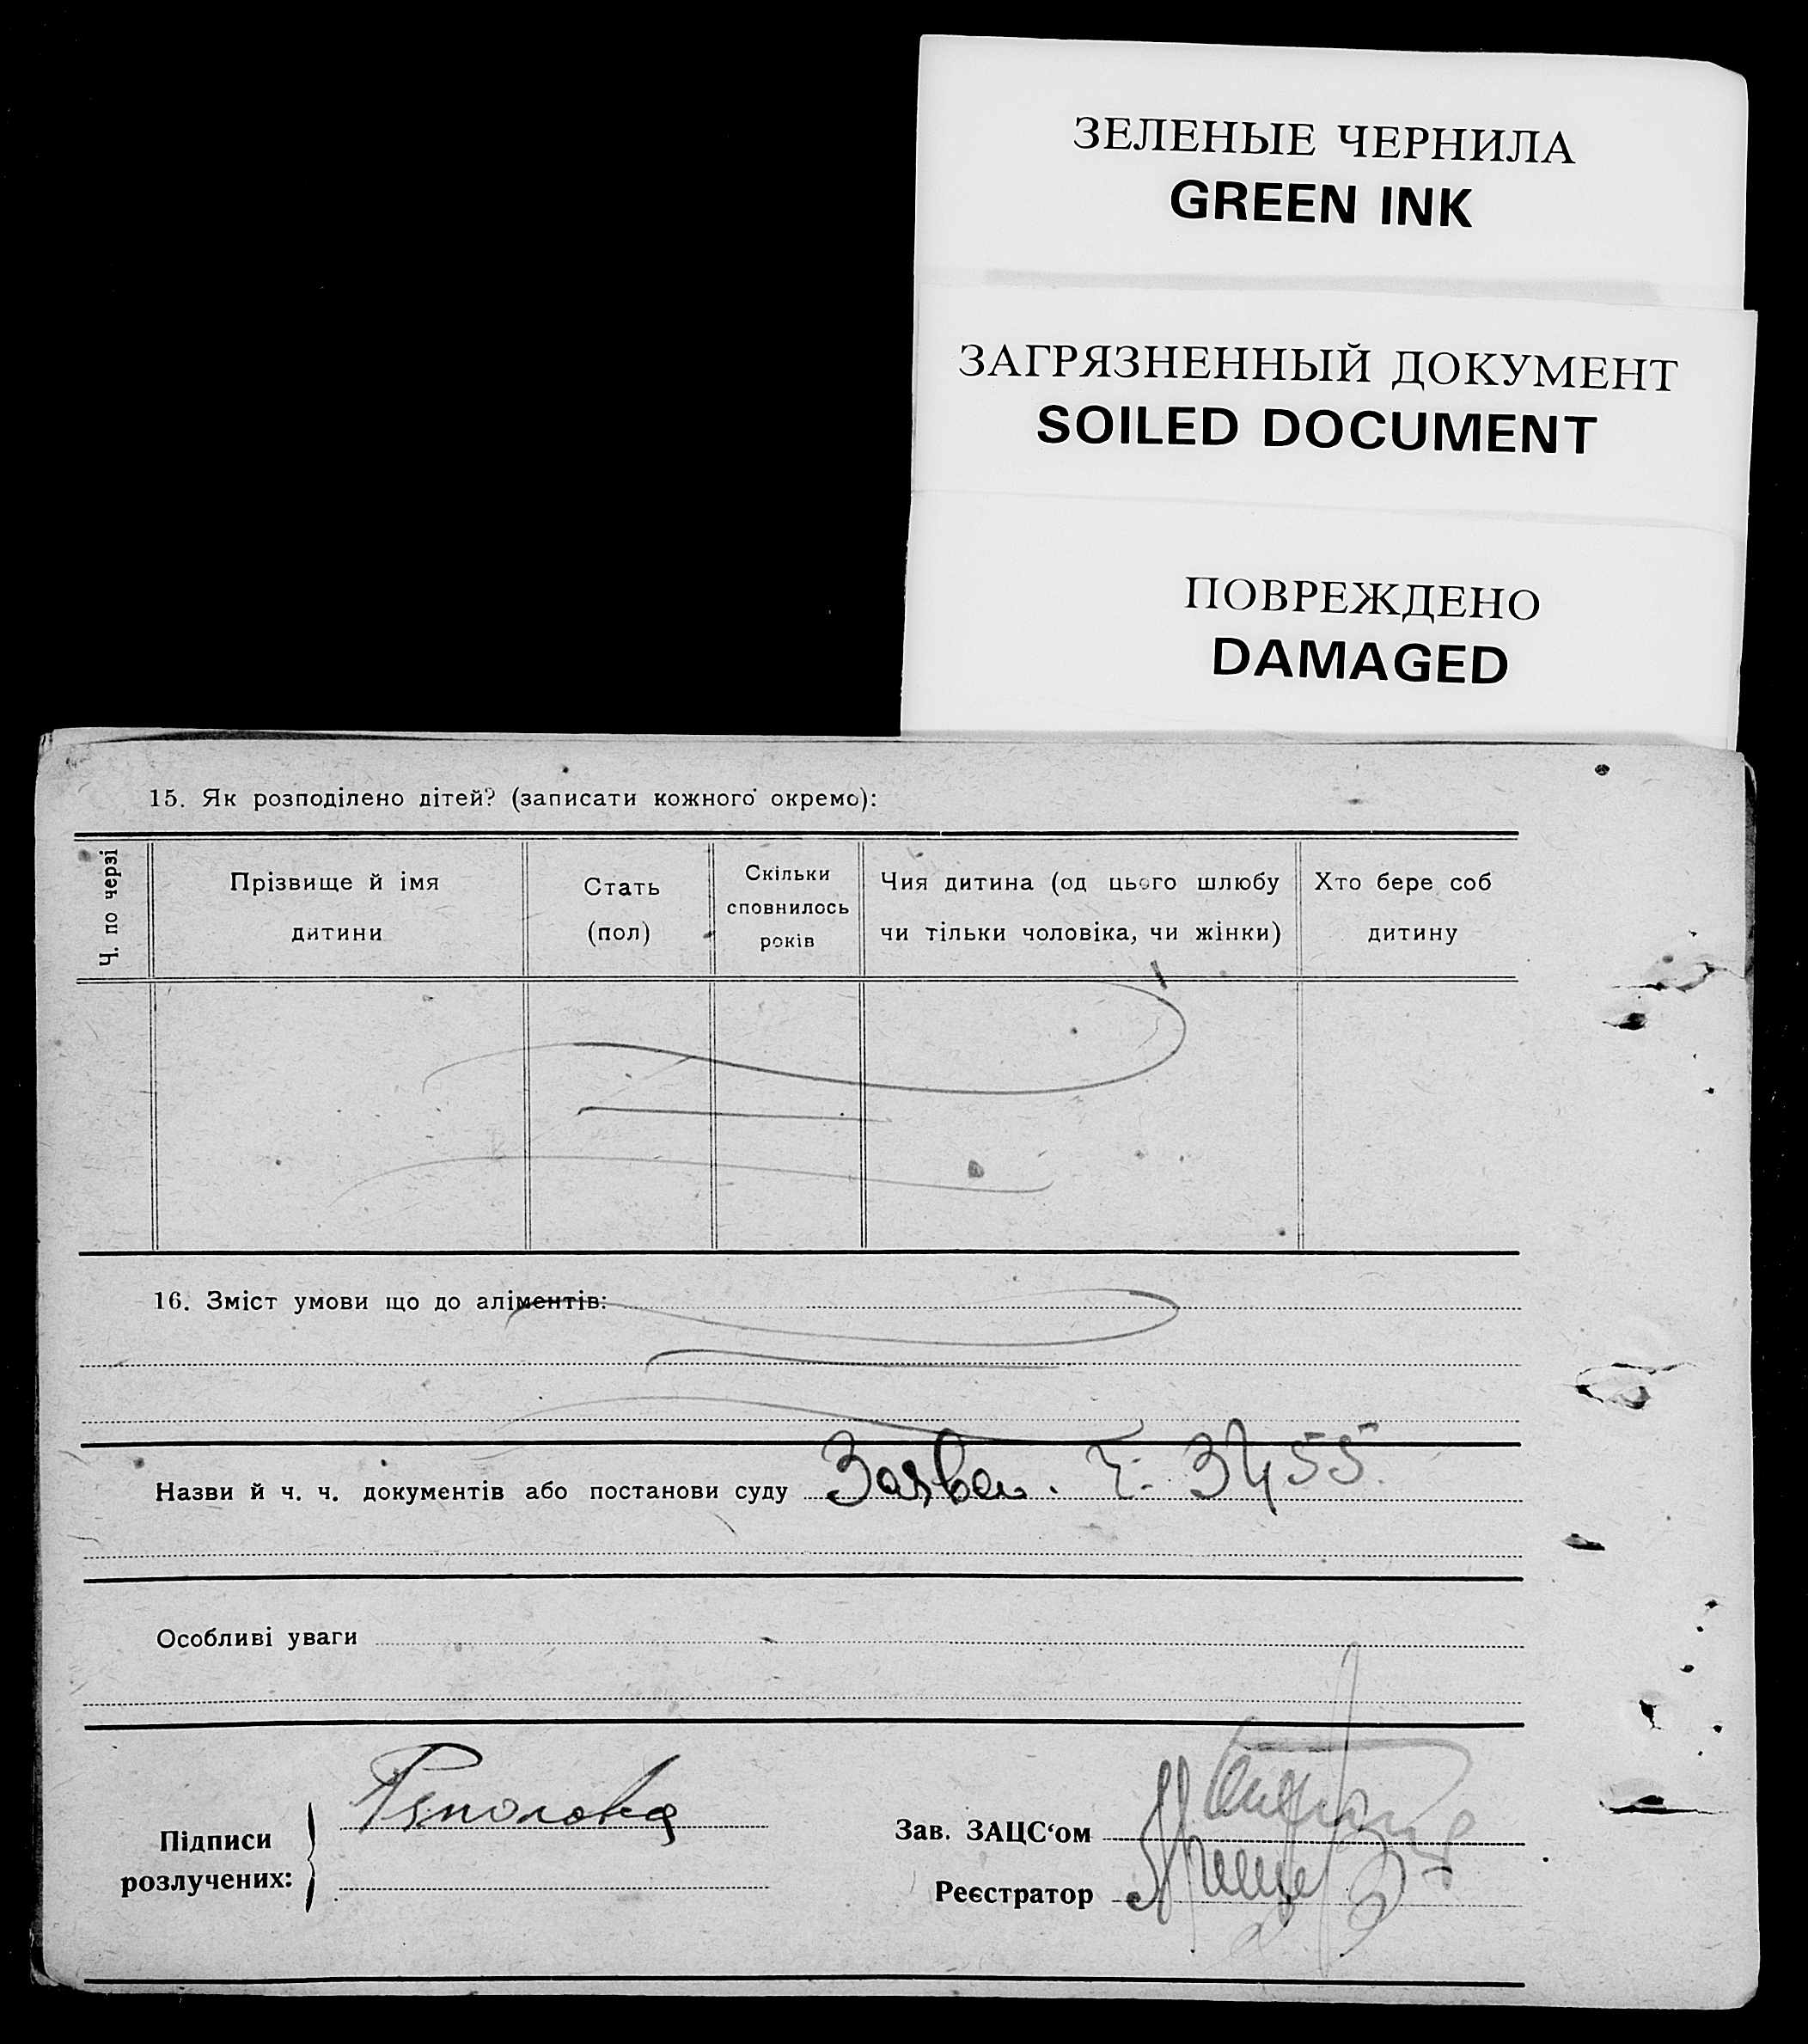 ЗЕЛЕНЫЕ ЧЕРНИЛА
GREEN INK
ЗАГРЯЗНЕННЫЙ ДОКУМЕНТ
SOILED DOCUMENT
ПОВРЕЖДЕНО
DAMAGED
15. Як розподілено дітей? (записати кожного окремо):
Ч. по черзі
Прізвище й імя
дитини
Стать
(пол)
Скільки
сповнилось
років
Чия дитина (од цього шлюбу
чи тільки чоловіка, чи жінки)
Хто бере соб
дитину
16. Зміст умови що до аліментів:
Назви й ч. ч. документів або постанови суду Заява. Ч. 3455.
Особливі уваги
Підписи
розлучених:
Зав. ЗАЦС‘ом
Реєстратор